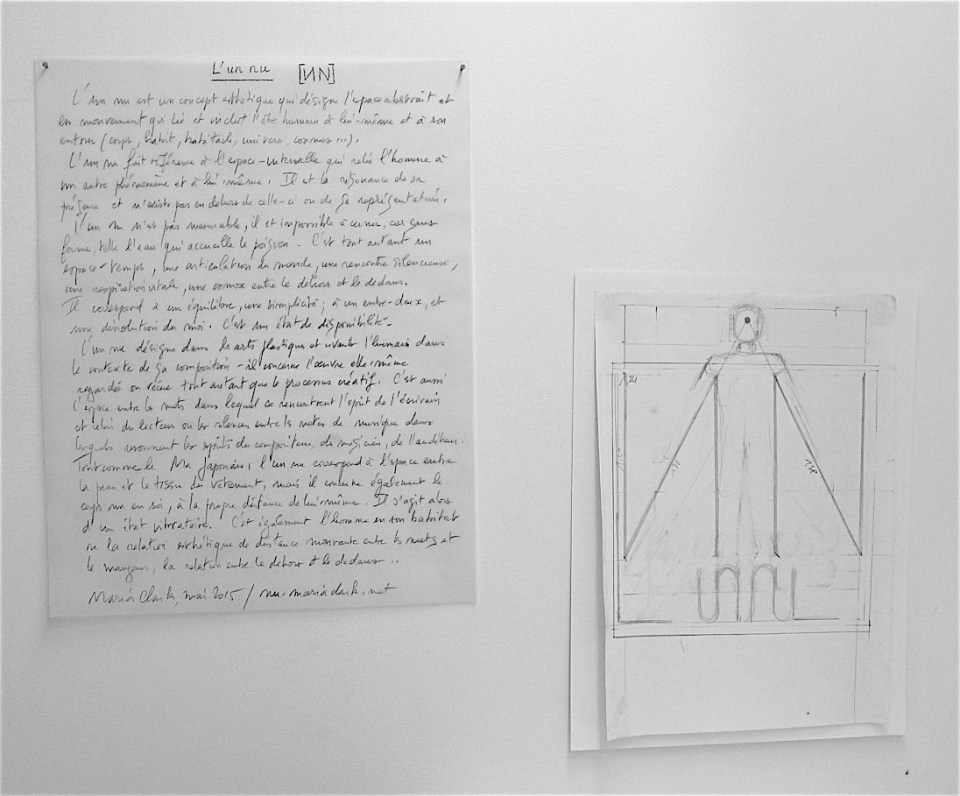 L'un nu [ИN]
L'un nu est un concept esthétique qui désigne l'espace abstrait et
en mouvement qui lie et inclut l'être humain à lui-même et à son
entour (corps, habit, habitacle, univers, cosmos ...).
L'un nu fait référence à l'espace-intervalle qui relie l'homme à
un autre phénomène et à lui-même. Il est la résonance de sa
présence et n'existe pas en dehors de celle-ci ou de sa représentation.
L'un nu n'est pas mesurable, il est impossible à cerner, car sans
forme, telle l'eau qui accueille le poisson. C'est tout autant un
espace-temps, une articulation du monde, une rencontre silencieuse,
une respiration vitale, une osmose entre le dehors et le dedans.
Il correspond à un équilibre, une simplicité ; à un entre-deux, et
une dissolution du moi. C'est un état de disponibilité.
L'un nu désigne dans les arts plastiques et vivants l'humain dans
le contexte de sa composition - il concerne l'œuvre elle-même
regardée ou vécue tout autant que le processus créatif. C'est aussi
l'espace entre les mots dans lequel se rencontrent l'esprit de l'écrivain
et celui du lecteur ou les silences entre les notes de musique dans
lesquels résonnent les esprits du compositeur, du musicien, de l'auditeur.
Tout comme le Ma japonais, l'un nu correspond à l'espace entre
la peau et le tissu du vêtement, mais il concerne également le
corps nu en soi, à la propre distance de lui-même. Il s'agit alors
d'un état vibratoire. C'est également l'homme en son habitat
ou la relation esthétique de distance mouvante entre les mets et
le mangeur, la relation entre le dehors et le dedans ..
Maria Clark, mai 2015 / nu.mariaclark.net
unnu